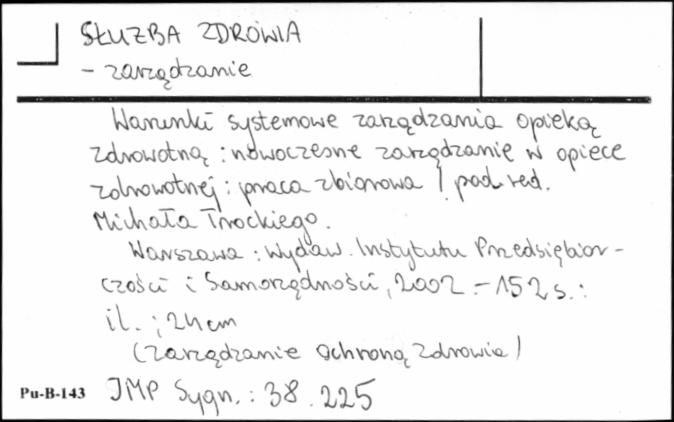 SŁUŻBA ZDROWIA
- zarządzanie
Warunki systemowe zarządzania opieką
zdrowotną : nowoczesne zarządzanie w opiece
zdrowotnej : praca zbiorowa / pod red.
Michała Trockiego.
Warszawa : Wydaw. Instytutu Przedsiębior-
czości i Samorządności, 2002. - 152 s. :
il. ; 24 cm
(Zarządzanie Ochroną Zdrowia)
Pu-B-143 IMP Sygn. : 38.225